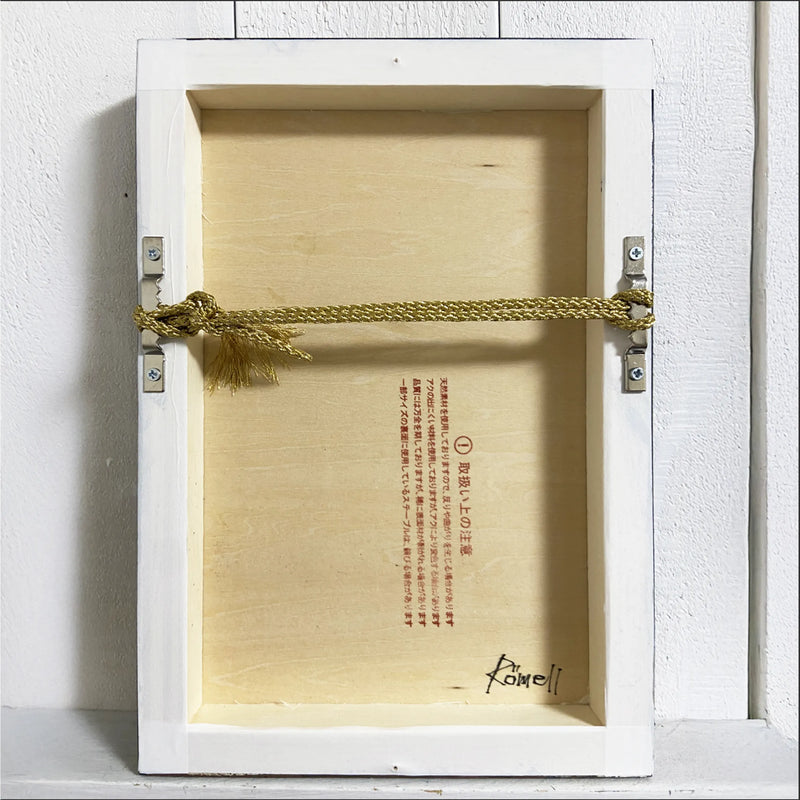 取扱い上の注意
天然素材を使用しておりますので、反りや曲がりを生じる場合があります
アクの出にくい材料を使用しておりますが、アクにより変色する場合があります
品質には万全を期しておりますが、稀に表面材が剥がれる場合があります
一部サイズの裏面に使用しているステープルは、錆びる場合があります
Römell